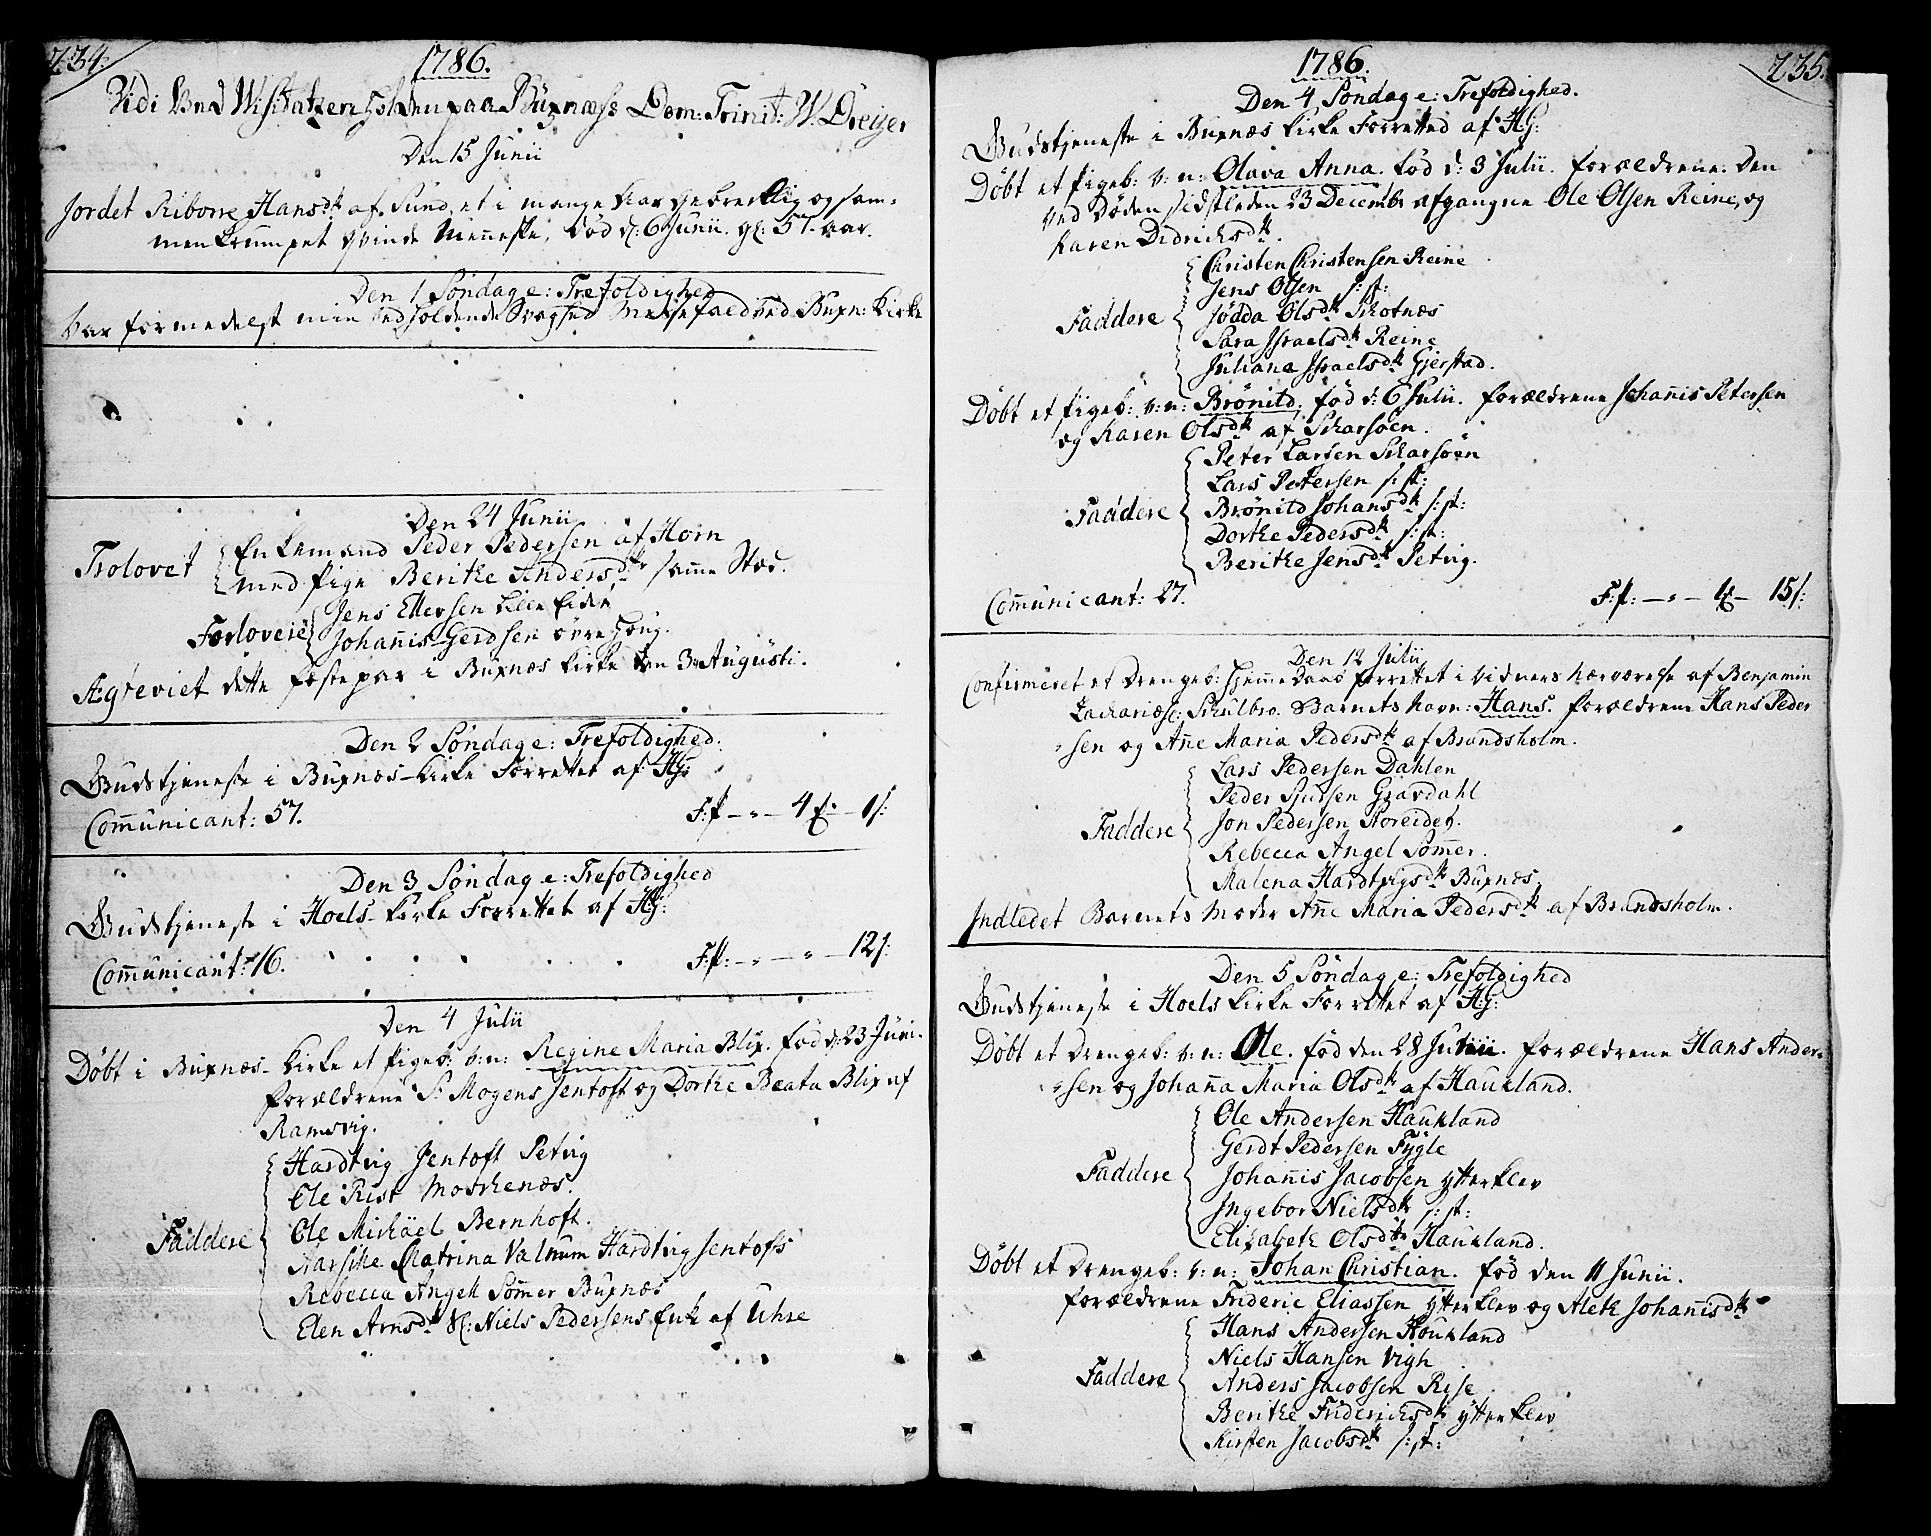 234.
1786.
Vidi Ved Visitatzen holden paa Buxnæss Dom: Trinit: W. Dreyer
Den 15 Junii
Jordet Riborre Hansdtr af Sund, et i mange Aar gebrecklig og sam-
menkrumpet qvinde Menneske, død d: 6 Junii. gl: 57 aar.
Den 1 Søndag e: Trefoldighed
Var formedelst min vedholdende Svaghed Messefald ved Buxn: Kirke
Den 24 Junii
Trolovet
Enkemand Peder Pedersen af Horn
med Pige Berithe Andersdtr samme Stæd.
Forlovere
Jens Ellevsen Lille Eide
Johannis Gerdsen øvre Houg.
Ægteviet dette festepar i Buxnæs Kirke den 3 Augusti.
Den 2 Søndag e: Trefoldighed.
Gudstjeneste i Buxnæs Kirke Forrettet af HG:
Communicant: 57.
F:f — " — 4 — 1 s:
Den 3 Søndag e: Trefoldighed
Gudstjeneste i Hoels Kirke Forrettet af HG:
Communicant: 16.
F:f: — " — " — 12 s:
Den 4 Julii
Døbt i Buxnæs Kirke et Pigeb: v: n: Regine Maria Blix. fød d: 23 Juni.
forældrene Sr Mogens Jentoft og Dorthe Beata Blix af
Ramsvig.
Faddere
Hardtvig Jentoft Petvig
Ole Rist Moschenæs.
Ole Michael Bernhoft.
Catrina Valnum Hardtvig Jentofts
Rebecca Angell Sommer Buxnæs
Elen Arnsdtr Sl: Niels Pedersens Enke af Uhre
235.
1786.
Den 4 Søndag e: Trefoldighed.
Gudstjeneste i Buxnæs Kirke Forretted af HG:
Døbt et Pigeb: v: n: Olava Anna. fød d: 3 Julii. forældrene: Den
ved Døden sidstleden 23 Decembr afgangne Ole Olsen Reine, og
Karen Didrichsdtr.
Faddere
Christen Christensen Reine
Jens Olsen s: st:
Jødda Olsdtr Skotnæs
Sara Israelsdtr Reine
Juliana Israelsdtr Gjerstad.
Døbt et Pigeb: v: n: Brønild, fød d: 6 Julii. forældrene Johannis Petersen
og Karen Olsdtr af Scharsøen.
Faddere
Peter Larsen Scharsøen
Lars Petersen s: st:
Brønild Johansdtr s: st:
Dorthe Pedersdtr s: st:
Berithe Jensdtr Petvig.
Communicant: 27.
F:f: — " — — 15 s:
Den 12 Julii
Confirmeret et Drengeb: hjemme Daab forrettet i vidners nærværelse af Benjamin
Zachariæs: Schulbro. Barnets Navn: Hans. forældrene Hans Peder
sen og Anne Maria Pedersdtr af Brandsholm.
Faddere
Lars Pedersen Dahlen
Peder Sjursen Gravdahl
Jon Pedersen Storeiden.
Rebecca Angel Sommer.
Malena Hardtvigsdtr Buxnæs.
Indledet Barnets Moder Anne Maria Pedersdtr af Brandsholm.
Den 5 Søndag e: Trefoldighed
Gudstjeneste i Hoels Kirke Forrettet af HG:
Døbt et Drengeb: v: n: Ole. fød den 28 Junii. forældrene Hans Ander-
sen og Johanna Maria Olsdtr af Haukland.
Faddere
Ole Andersen Haukland
Gerdt Pedersen Fygle
Johannis Jacobsen Ytterklev
Ingebor Nielsdtr s: st:
Elisabeth Olsdtr Haukland.
Døbt et Drengeb: v: n: Johan Christian. fød den 11 Junii.
forældrene Frideric Eliassen Ytterklev og Aleth Johannisdtr
Faddere
Hans Andersen Houkland
Niels Hansen Vigh
Anders Jacobsen Rise
Berithe Friderichsdtr Ytterklev
Kirsten Jacobsdtr s: st: